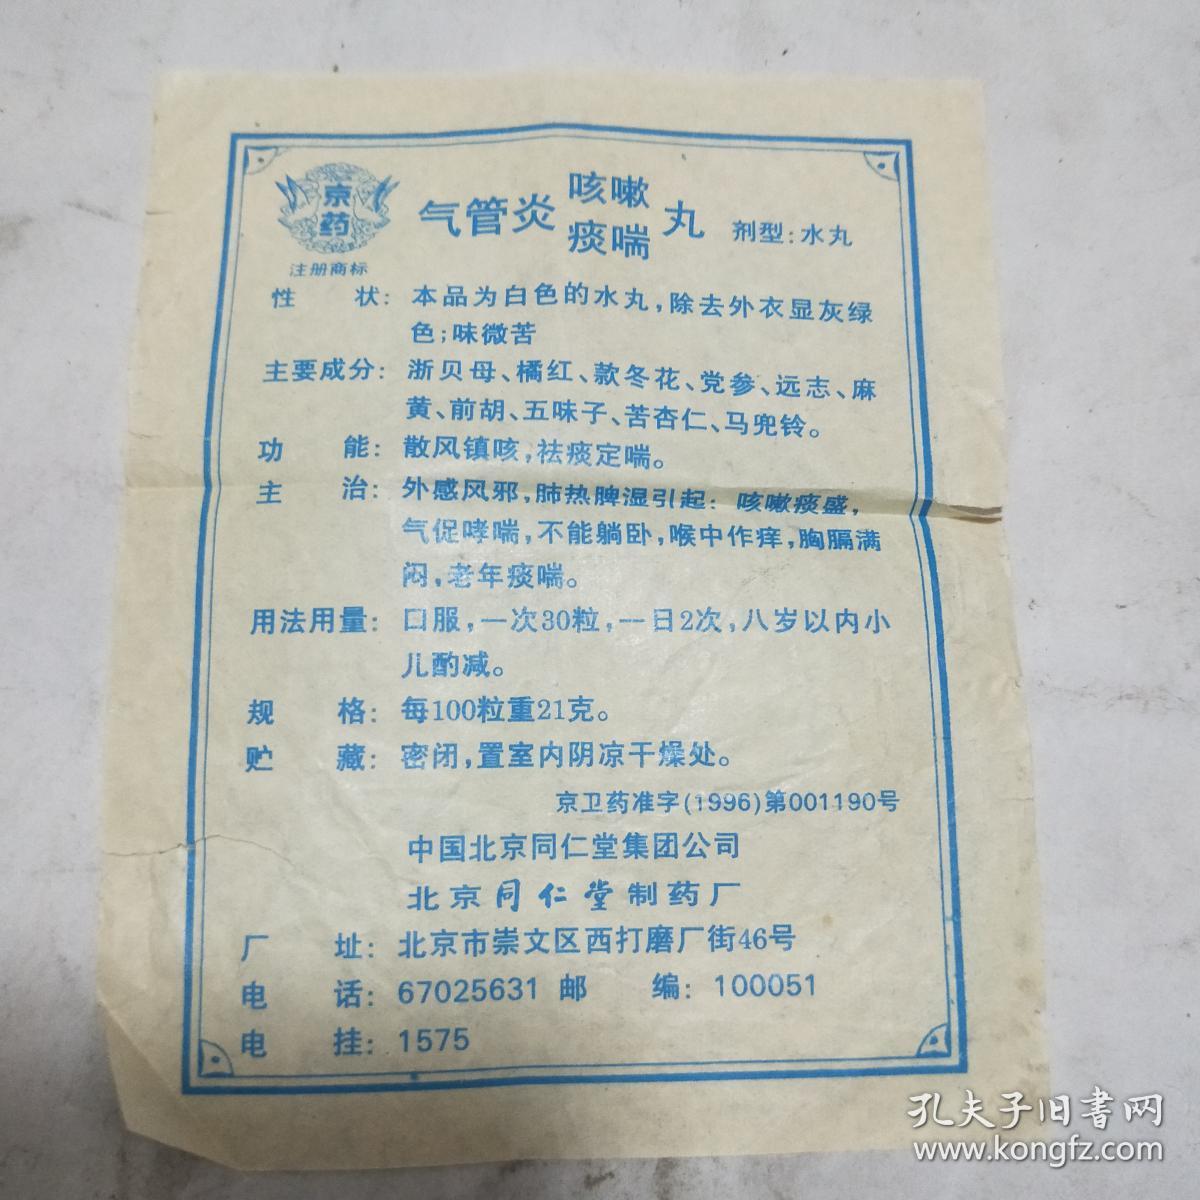 京
药
注册商标
气管炎咳嗽痰喘丸 剂型:水丸
性 状:本品为白色的水丸,除去外衣显灰绿
色;味微苦
主要成分:浙贝母、橘红、款冬花、党参、远志、麻
黄、前胡、五味子、苦杏仁、马兜铃。
功 能:散风镇咳,祛痰定喘。
主 治:外感风邪,肺热脾湿引起:咳嗽痰盛,
气促哮喘,不能躺卧,喉中作痒,胸膈满
闷,老年痰喘。
用法用量:口服,一次30粒,一日2次,八岁以内小
儿酌减。
规 格:每100粒重21克。
贮 藏:密闭,置室内阴凉干燥处。
京卫药准字(1996)第001190号
中国北京同仁堂集团公司
北京同仁堂制药厂
厂 址:北京市崇文区西打磨厂街46号
电 话:67025631 邮 编:100051
电 挂:1575
孔夫子旧书网
www.kongfz.com